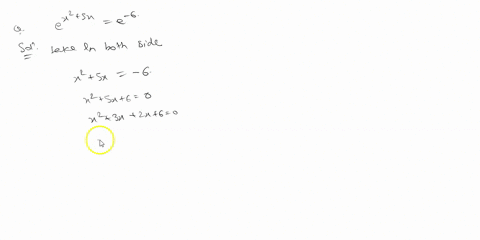 Q. e^{x²+5x} = e^{-6}.
Sol. Take ln both side
x² + 5x = -6.
x² + 5x + 6 = 0
x² + 3x + 2x + 6 = 0